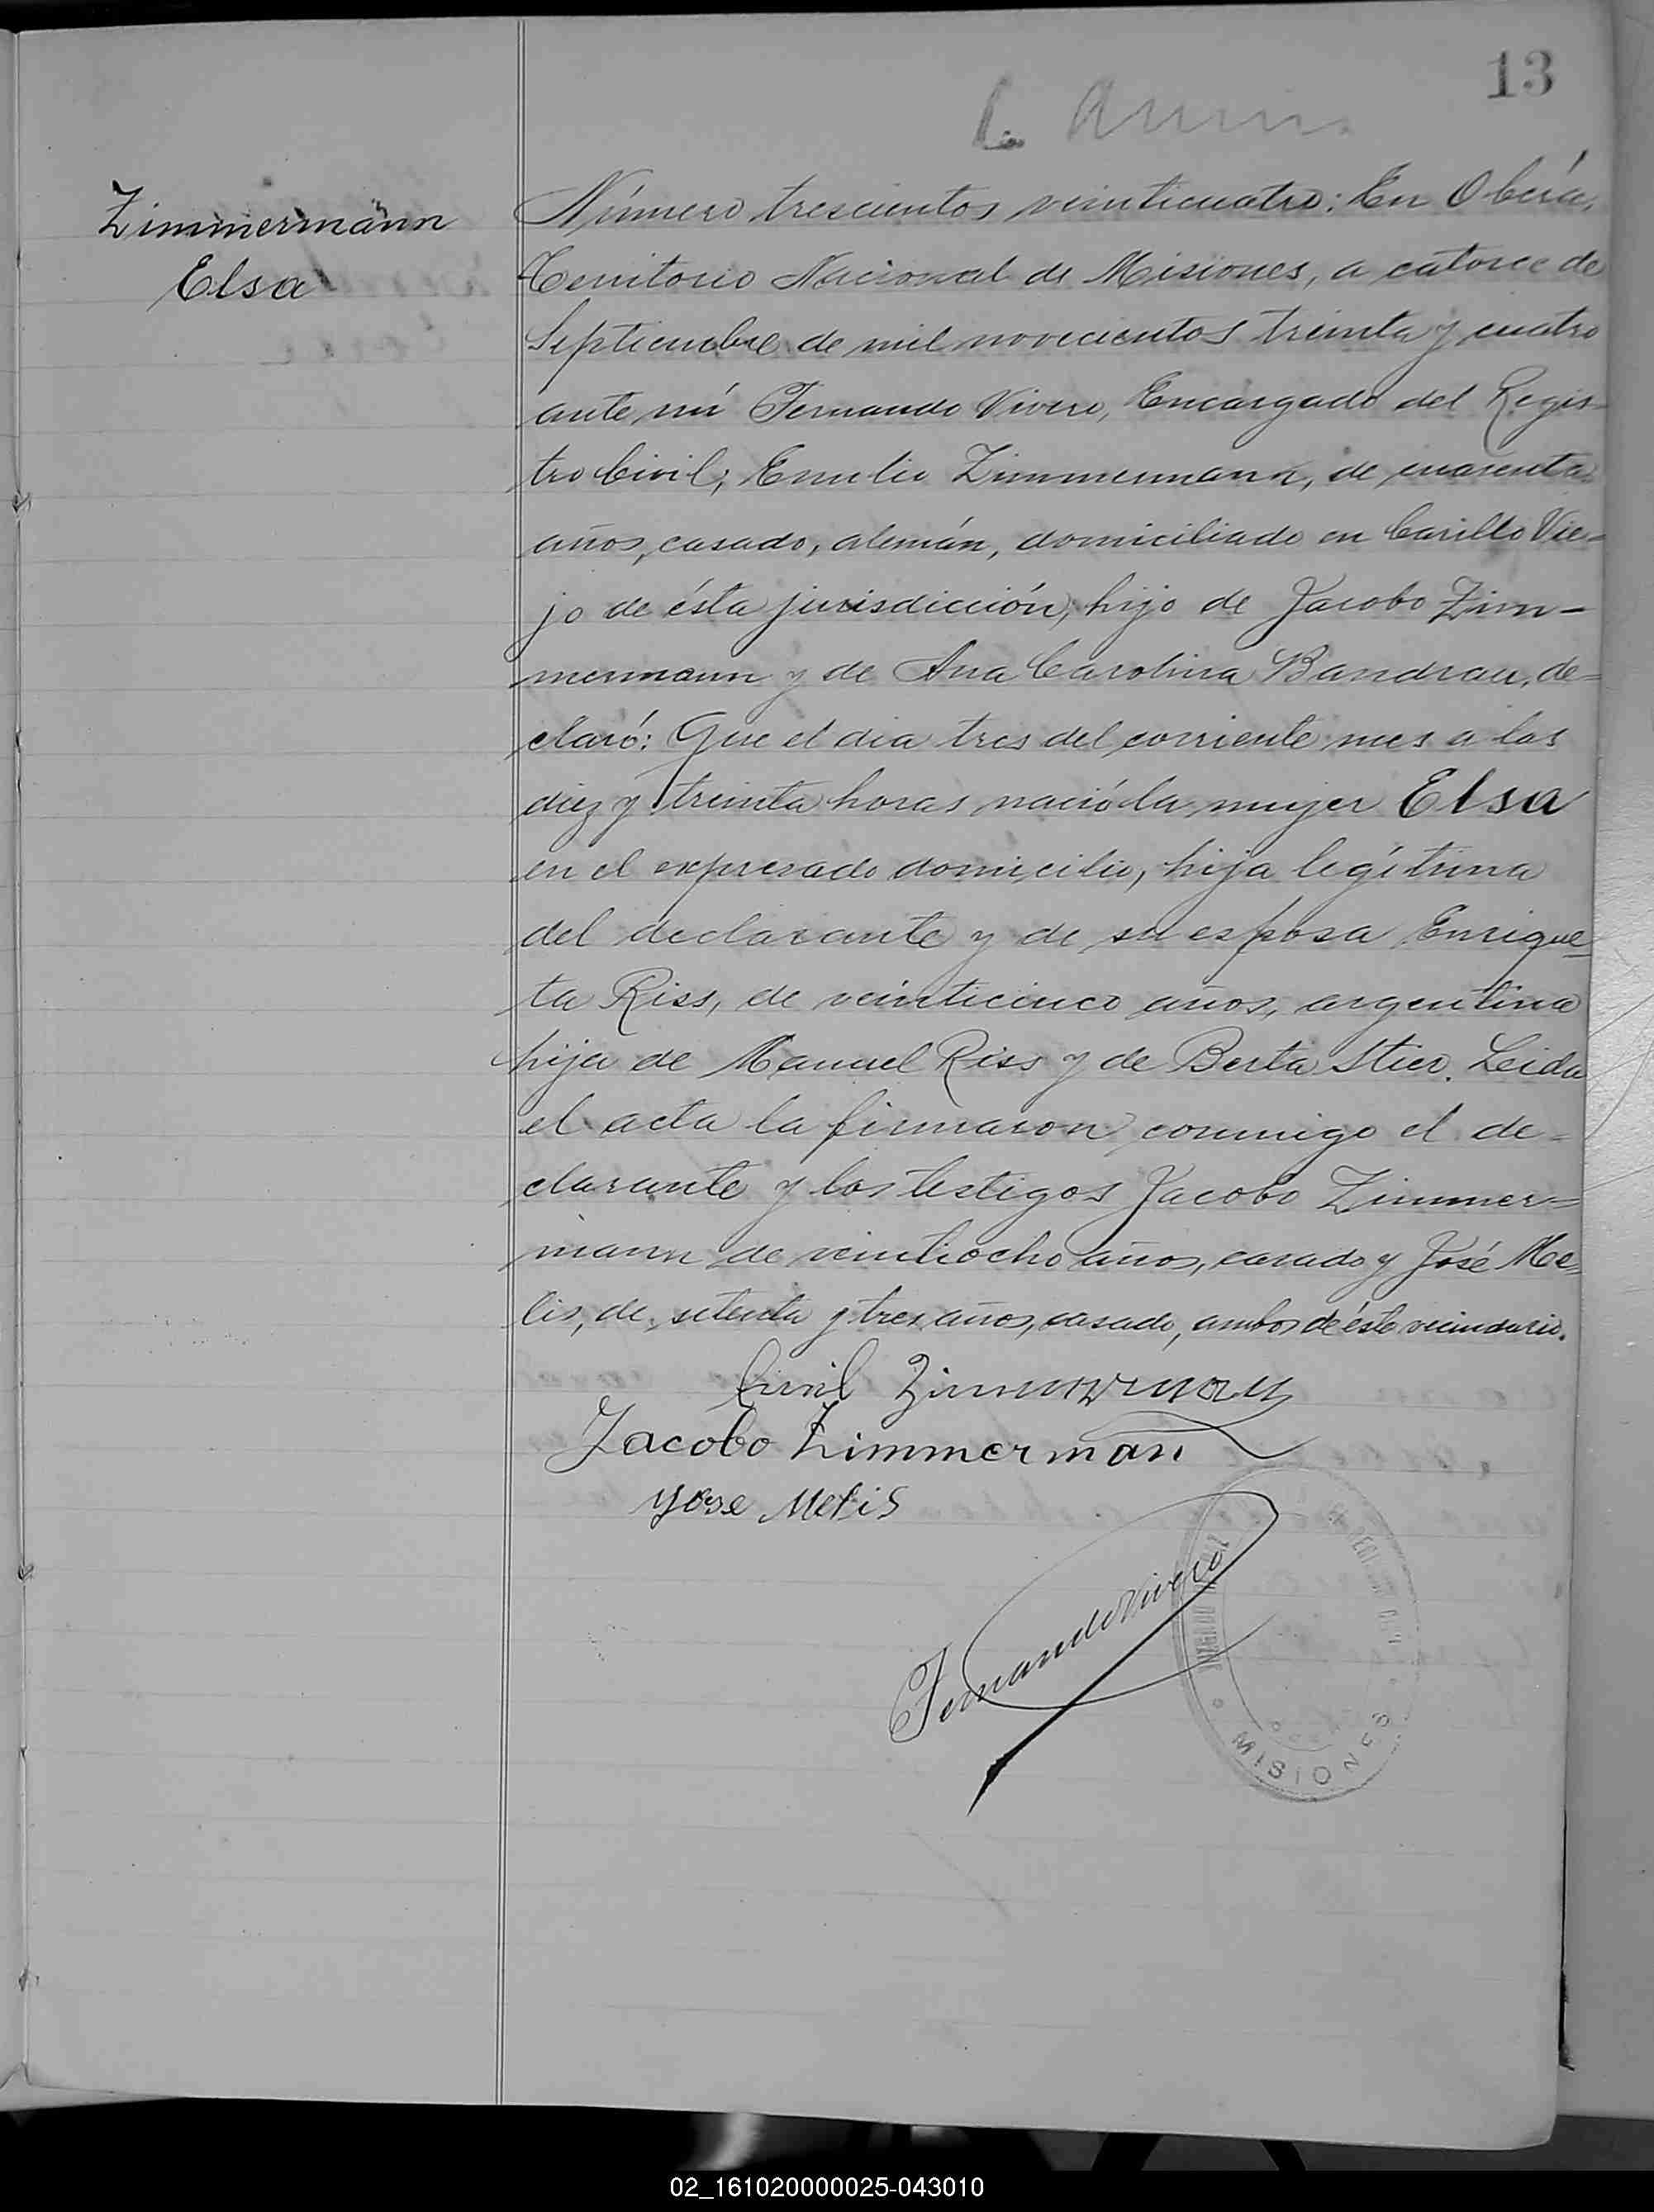 13
Zimmermann
Elsa
Número trescientos veinticuatro: En Oberá,
Territorio Nacional de Misiones, a catorce de
Septiembre de mil novecientos treinta y cuatro
ante mí Fernando Vivero, Encargado del Regis-
tro Civil; Emilio Zimmermann, de cuarenta
años, casado, alemán, domiciliado en Carillo Vie=
jo de ésta jurisdicción, hijo de Jacobo Zim-
mermann y de Ana Carolina Bandrau, de=
claró: Que el dia tres del corriente mes a las
diez y treinta horas nació la mujer Elsa
en el expresado domicilio, hija legítima
del declarante y de su esposa Enrique
ta Riss, de veinticinco años, argentina
hija de Manuel Riss y de Berta Stier. Leida
el acta la firmaron conmigo el de=
clarante y los testigos Jacobo Zimmer=
mann de veintiocho años, casado y José Me=
lis, de setenta y tres años, casado, ambos de éste vecindario.
Emil Zimmermann
Jacobo Zimmerman
Yose Melis
Fernando Vivero
MISIONES
02_161020000025-043010